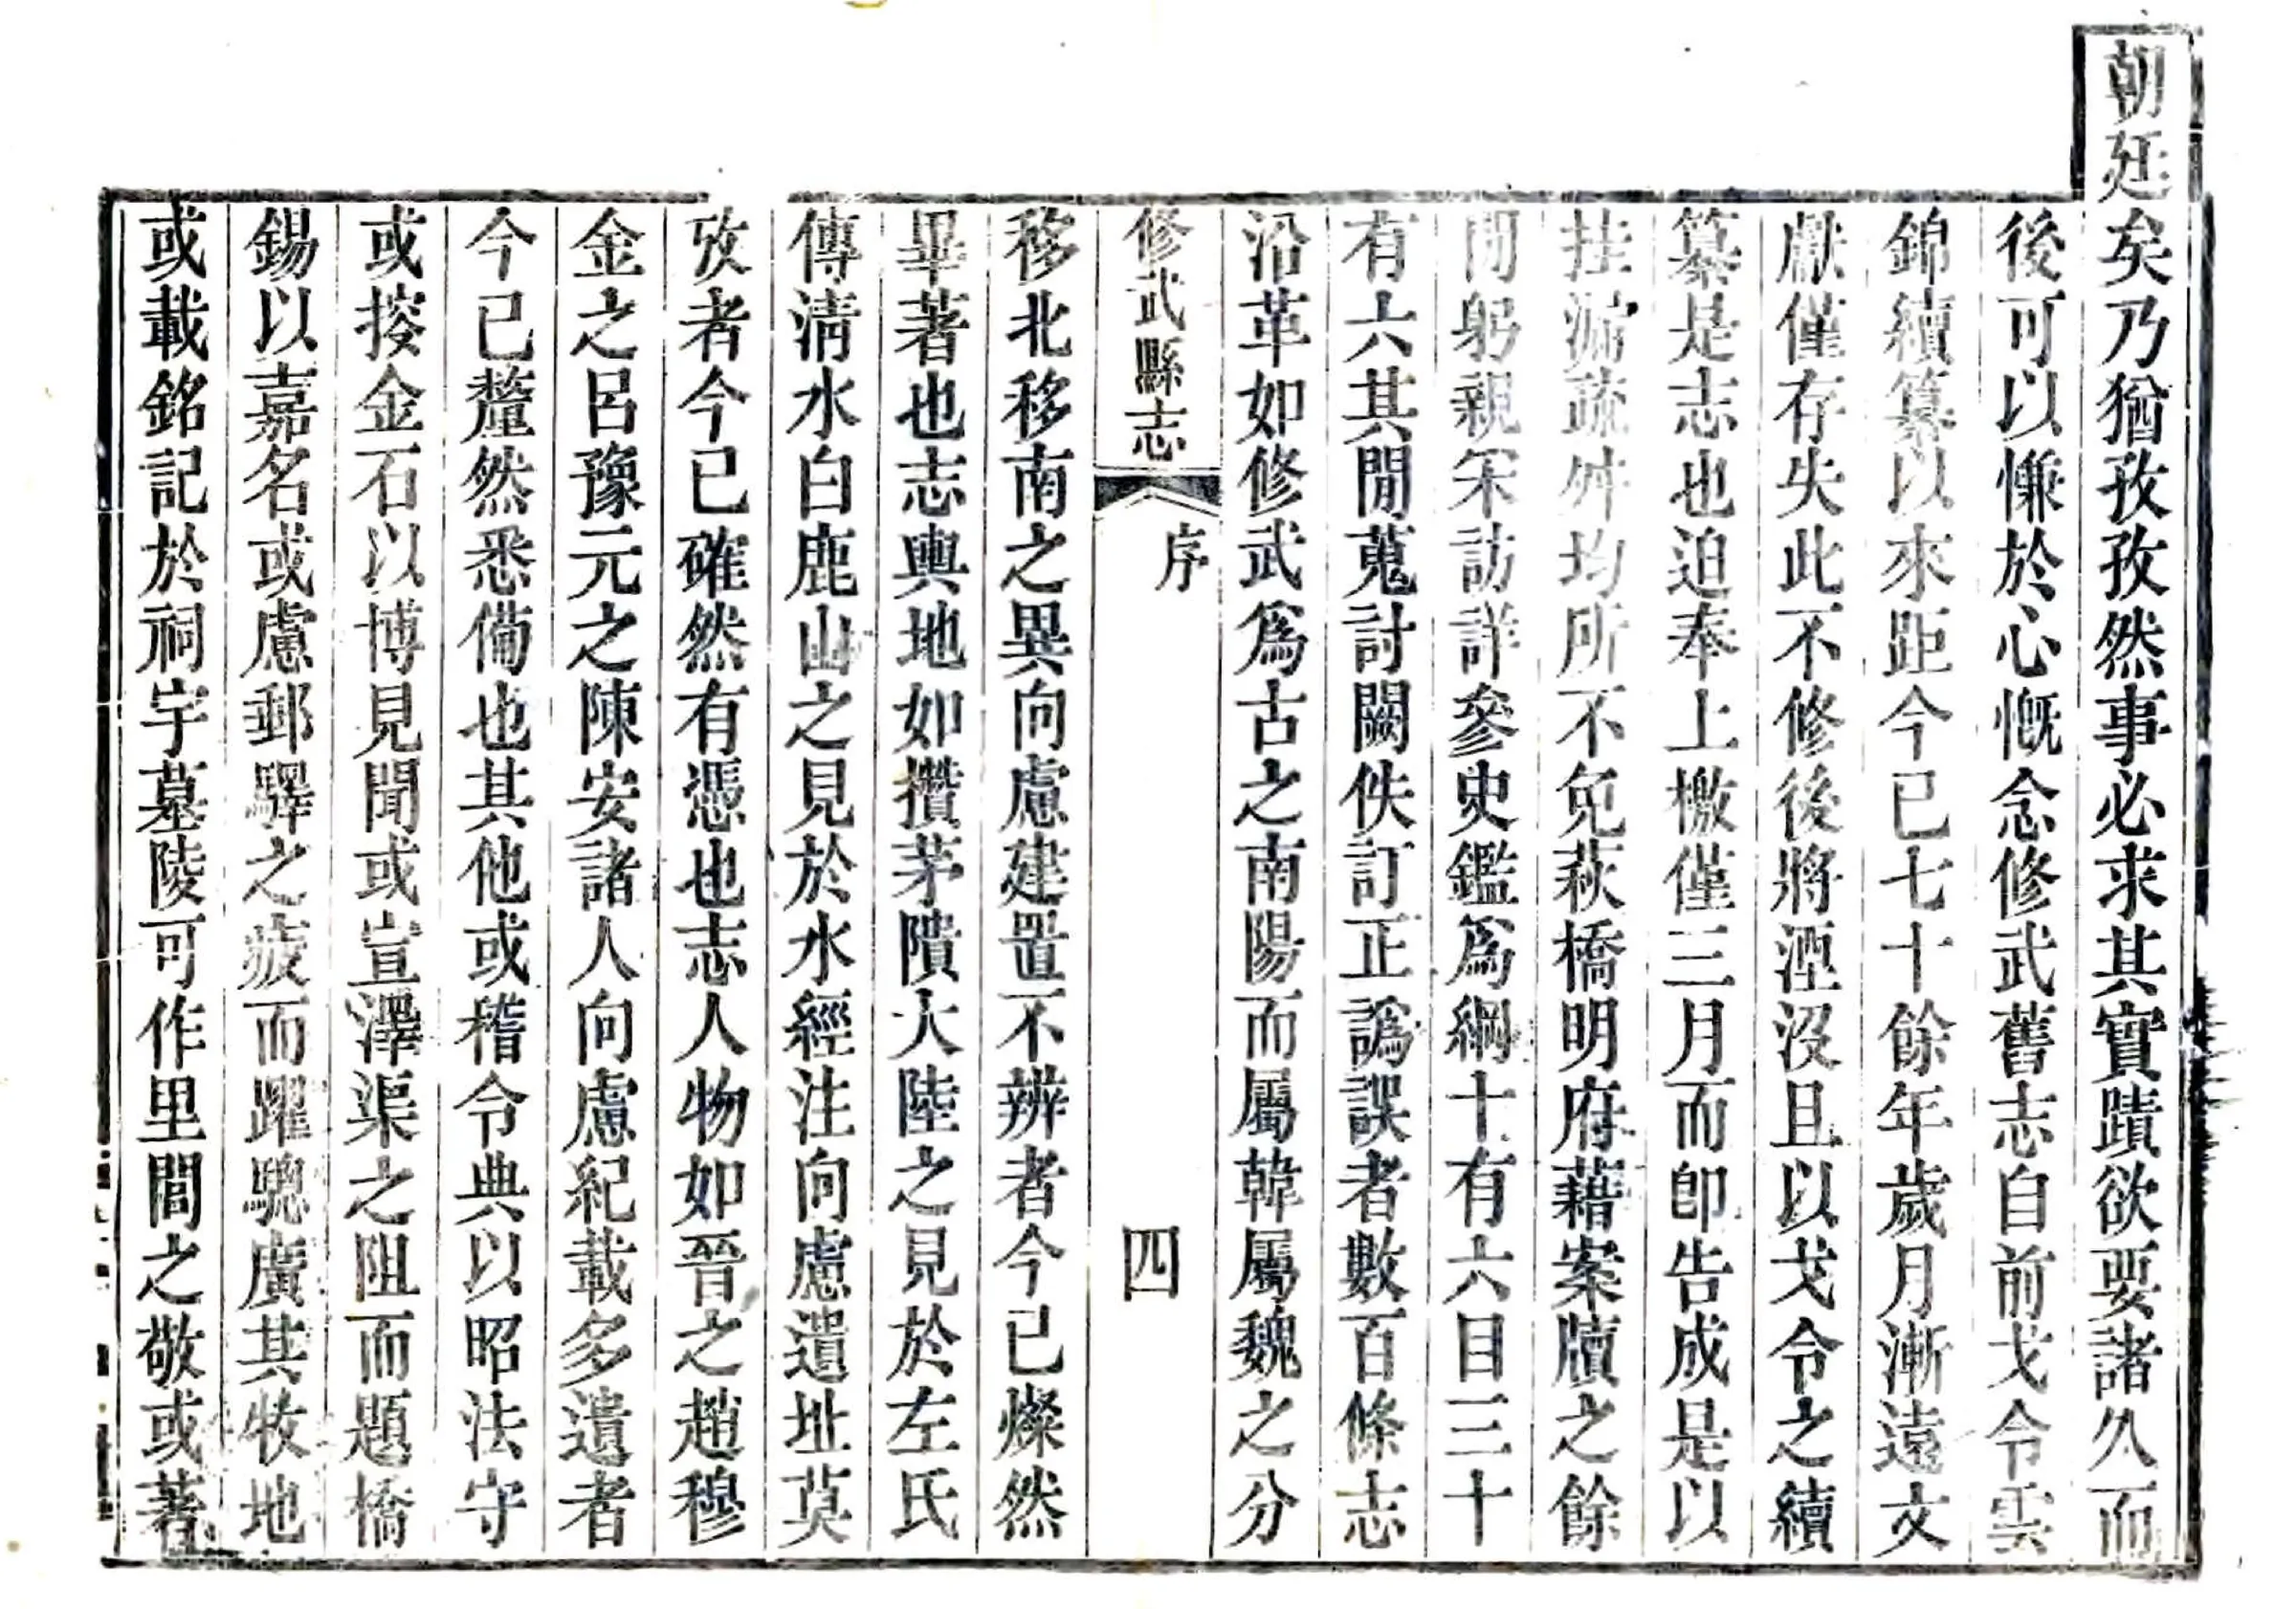 朝廷矣乃猶孜孜然事必求其實蹟欲要諸久而
後可以慊於心慨念修武舊志自前戈令雲
錦續纂以來距今已七十餘年歲月漸遠文
獻僅存失此不修後將湮沒且以戈令之續
纂是志也迫奉上檄僅三月而卽告成是以
挂漏疏舛均所不免萩橋明府藉案牘之餘
閒躬親采訪詳參史鑑爲綱十有六目三十
有六其閒蒐討闕佚訂正譌誤者數百條志
沿革如修武爲古之南陽而屬韓屬魏之分
修武縣志
序
四
移北移南之異向慮建置不辨者今已燦然
畢著也志輿地如攢茅隤大陸之見於左氏
傳淸水白鹿山之見於水經注向慮遺址莫
攷者今已確然有憑也志人物如晉之趙穆
金之呂豫元之陳安諸人向慮紀載多遺者
今已釐然悉備也其他或稽令典以昭法守
或按金石以博見聞或宣澤渠之阻而題橋
錫以嘉名或慮郵驛之疲而躍驄廣其牧地
或載銘記於祠宇墓陵可作里閭之敬或著